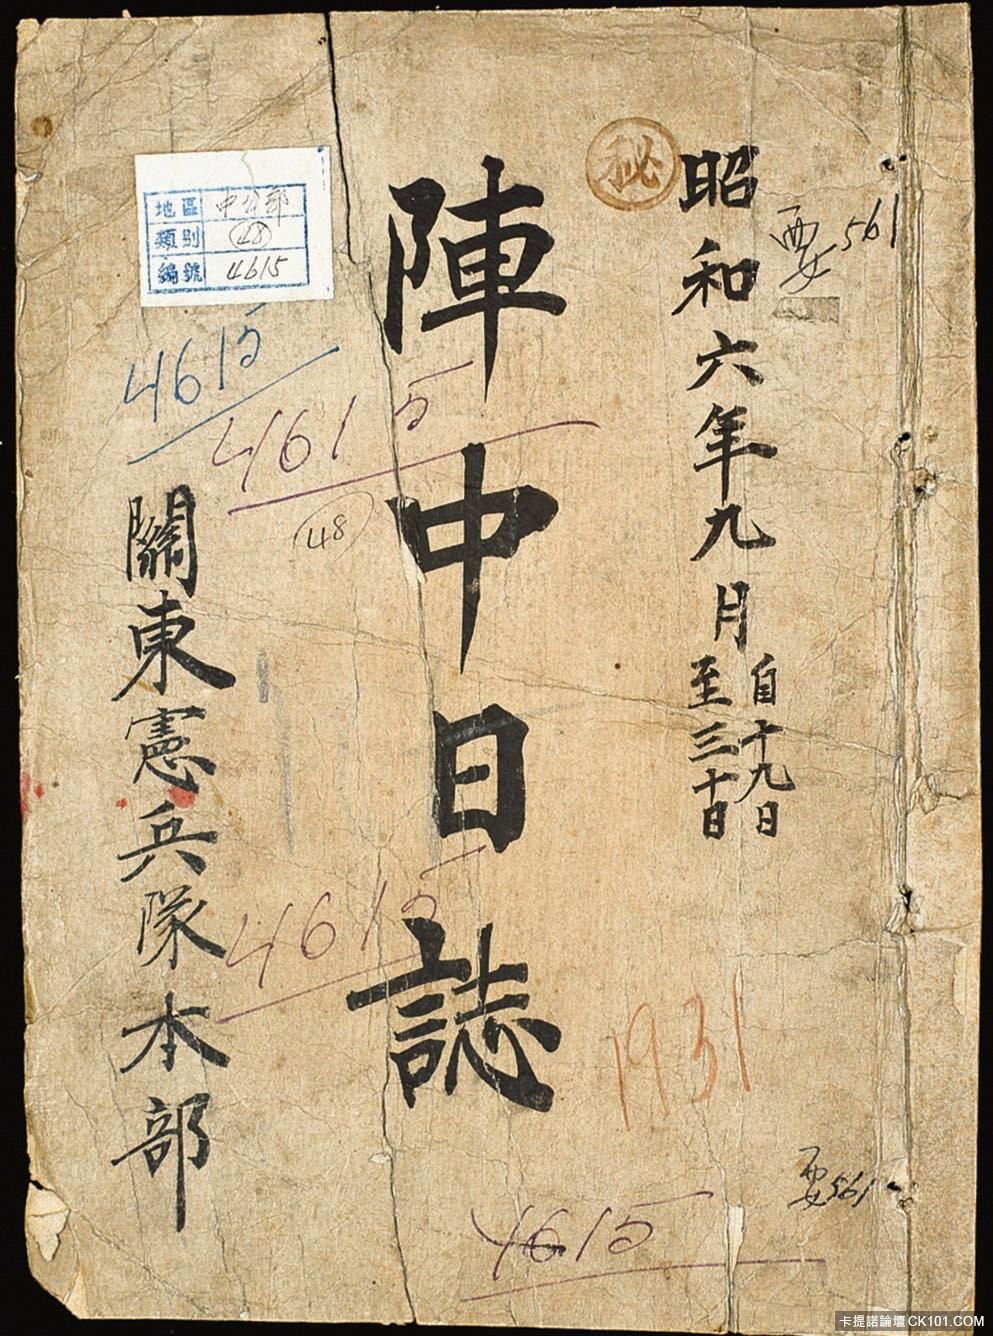 秘
昭和六年九月
自十九日
至三十日
要561
陣中日誌
關東憲兵隊本部
地區 中公部
類别 48
編號 4615
4615
4615
48
4615
1931
要561
4615
卡提諾論壇 CK101.COM